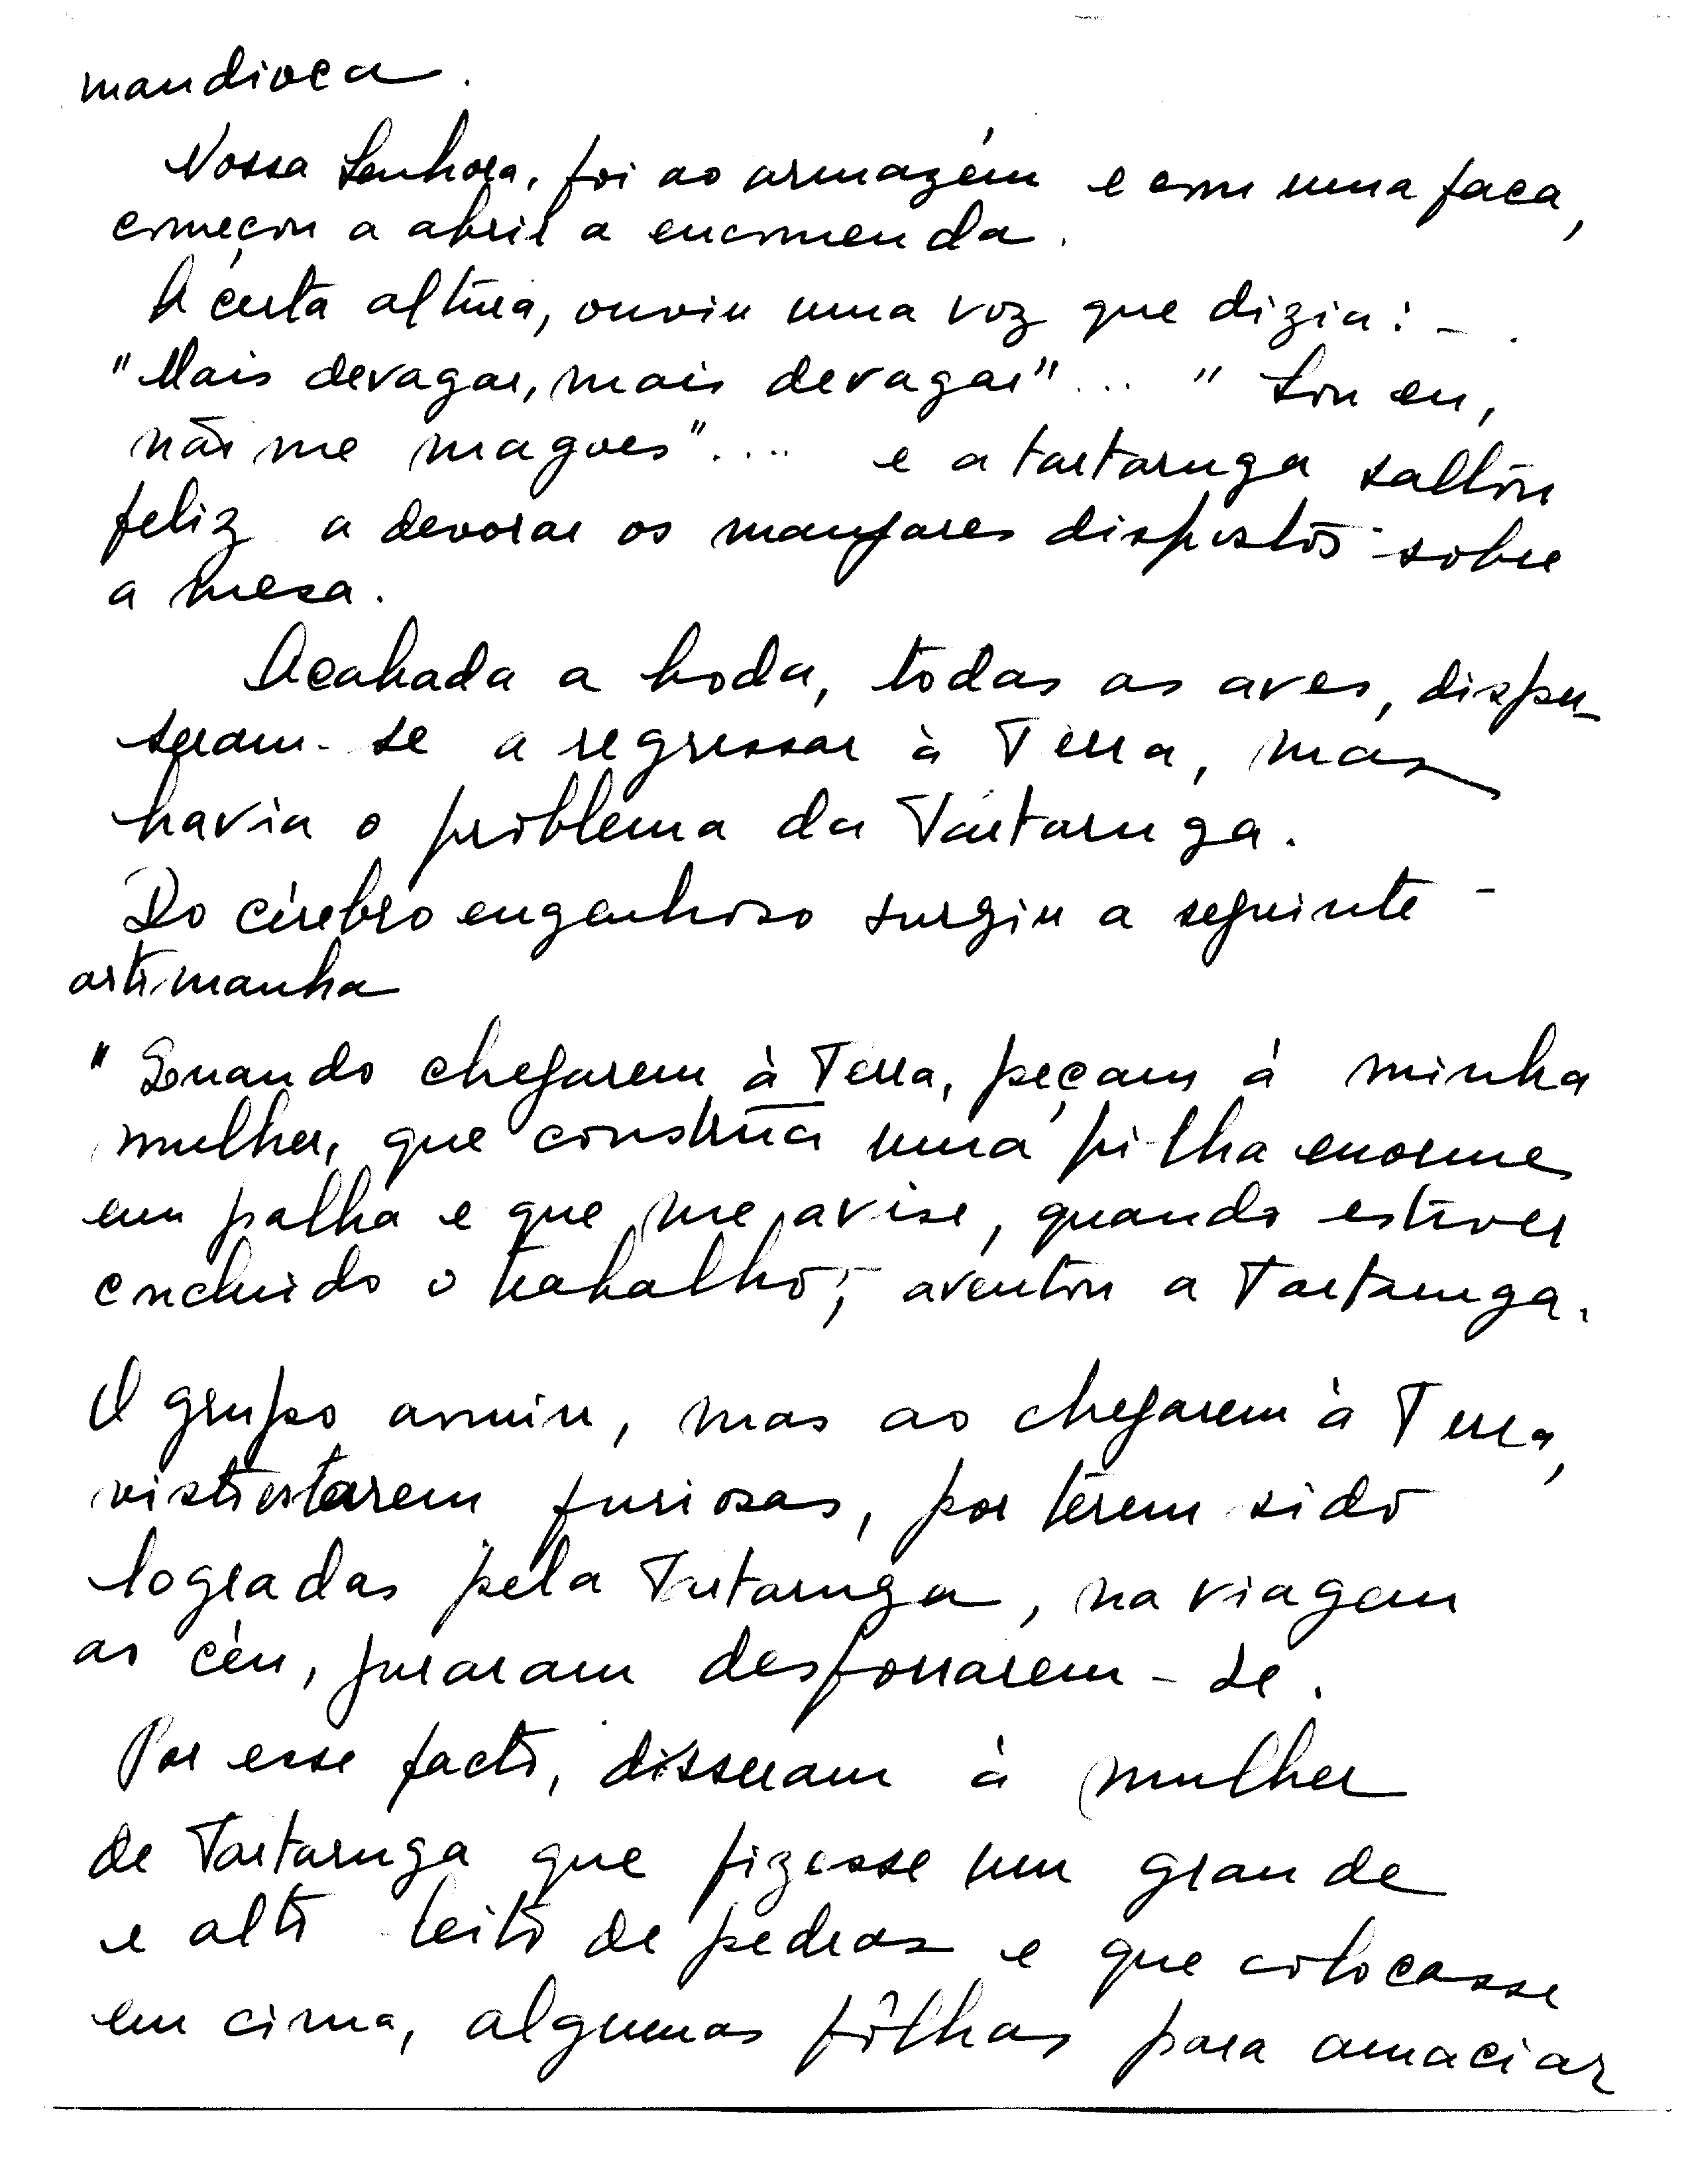 mandioca.
Nossa Senhora, foi ao armazém e com uma faca,
começou a abrir a encomenda.
A certa altura, ouviu uma voz que dizia: -
"Mais devagar, mais devagar"... "Sou eu,
não me magoes".... e a tartaruga saltou
feliz a devorar os manjares dispostos sobre
a mesa.
Acabada a boda, todas as aves, dispu-
seram-se a regressar à Terra, mas
havia o problema da Tartaruga.
Do cérebro engenhoso surgiu a seguinte -
artimanha
"Quando chegarem à Terra, peçam á minha
mulher, que construa uma pilha enorme
em palha e que me avise, quando estiver
concluido o trabalho; aventou a Tartaruga.
O grupo anuiu, mas ao chegarem à Terra,
visto estarem furiosas, por terem sido
logradas pela Tartaruga, na viagem
ao céu, juraram desforrarem-se.
Por esse facto, disseram à mulher
de Tartaruga que fizesse um grande
e alto leito de pedras e que colocasse
em cima, algumas fôlhas para amaciar